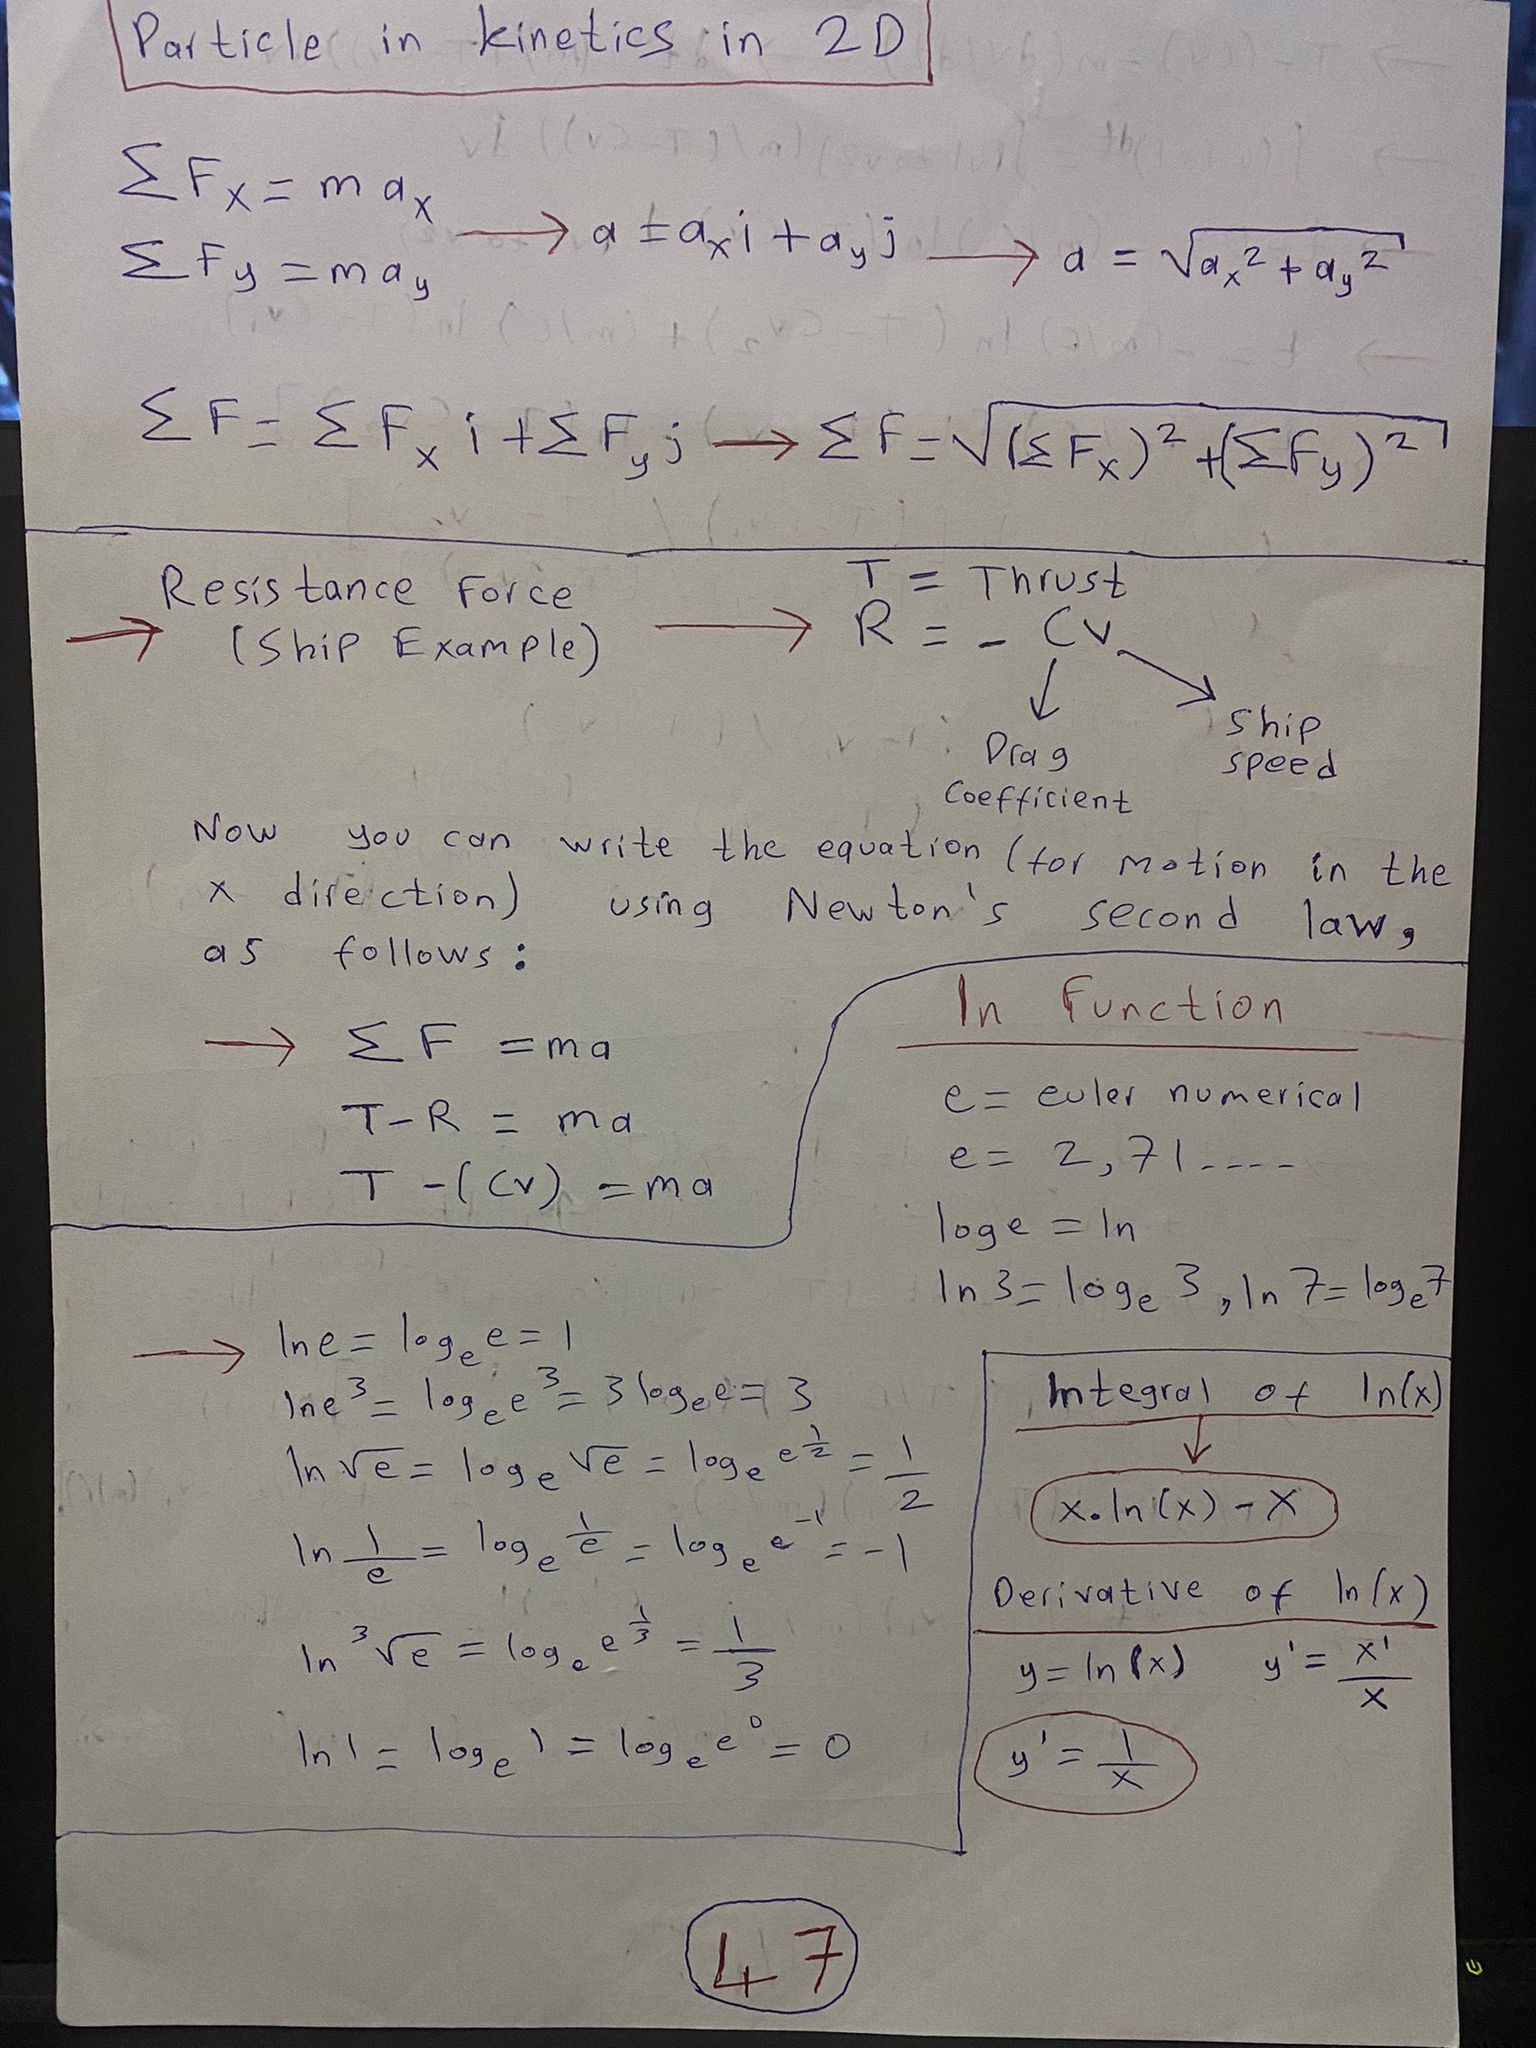 Particle in kinetics in 2D
ΣFx = m ax
ΣFy = m ay
→ a = axi + ayj → a = √ax² + ay²
ΣF = ΣFx i + ΣFy j → ΣF = √(ΣFx)² + (ΣFy)²
→ Resistance Force
(Ship Example)
→ T = Thrust
R = - Cv
Drag
Coefficient
Ship
speed
Now you can write the equation (for motion in the
x direction) using Newton's second law,
as follows:
→ ΣF = ma
T-R = ma
T -(Cv) = ma
ln Function
e = euler numerical
e = 2,71----
loge = ln
ln3 = logₑ3, ln7 = logₑ7
→ lne = logₑe = 1
lne³ = logₑe³ = 3logₑe = 3
ln√e = logₑ√e = logₑe^1/2 = 1/2
ln 1/e = logₑ 1/e = logₑe⁻¹ = -1
ln ³√e = logₑe^1/3 = 1/3
ln1 = logₑ1 = logₑe⁰ = 0
Integral of ln(x)
x.ln(x) - x
Derivative of ln(x)
y = ln(x) y' = x'/x
y' = 1/x
47